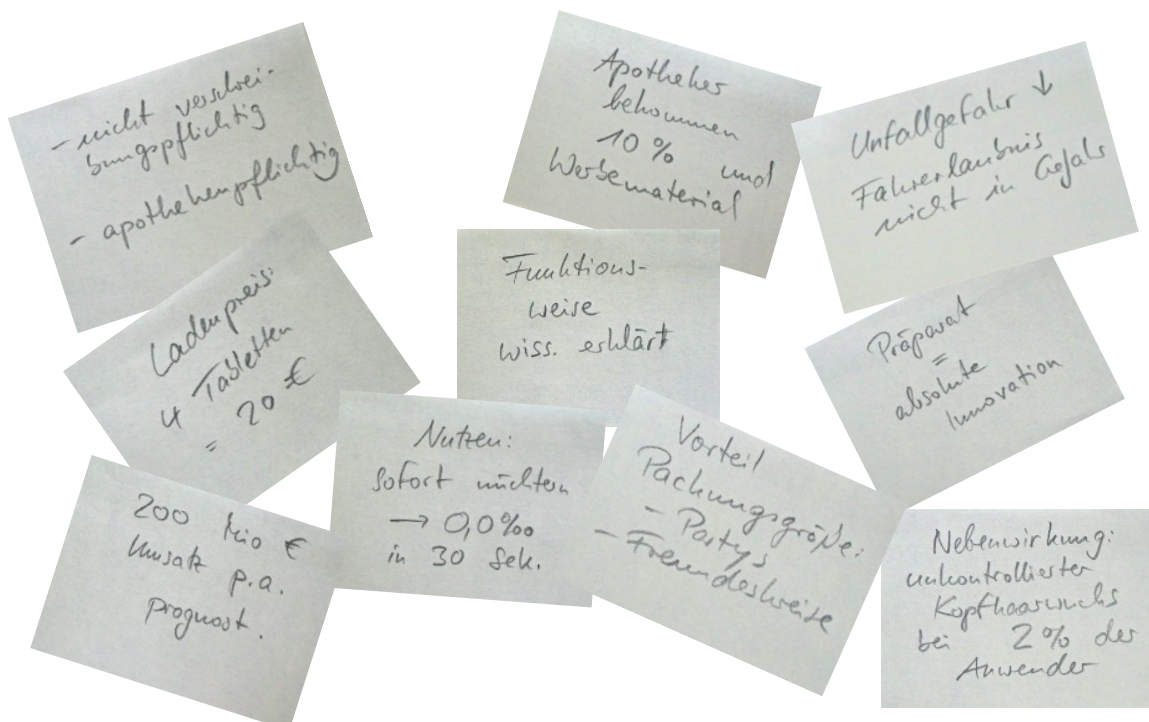 - nicht verschrei-
bungspflichtig
- apothekenpflichtig
Apotheker
bekommen
10 % und
Werbematerial
Unfallgefahr ↓
Fahrerlaubnis
nicht in Gefahr
Ladenpreis:
4 Tabletten
= 20 €
Funktions-
weise
wiss. erklärt
Präparat
=
absolute
Innovation
200 Mio €
Umsatz p.a.
prognost.
Nutzen:
sofort nüchtern
→ 0,0‰
in 30 Sek.
Vorteil
Packungsgröße:
- Partys
- Freundeskreise
Nebenwirkung:
unkontrollierter
Kopfhaarwuchs
bei 2 % der
Anwender